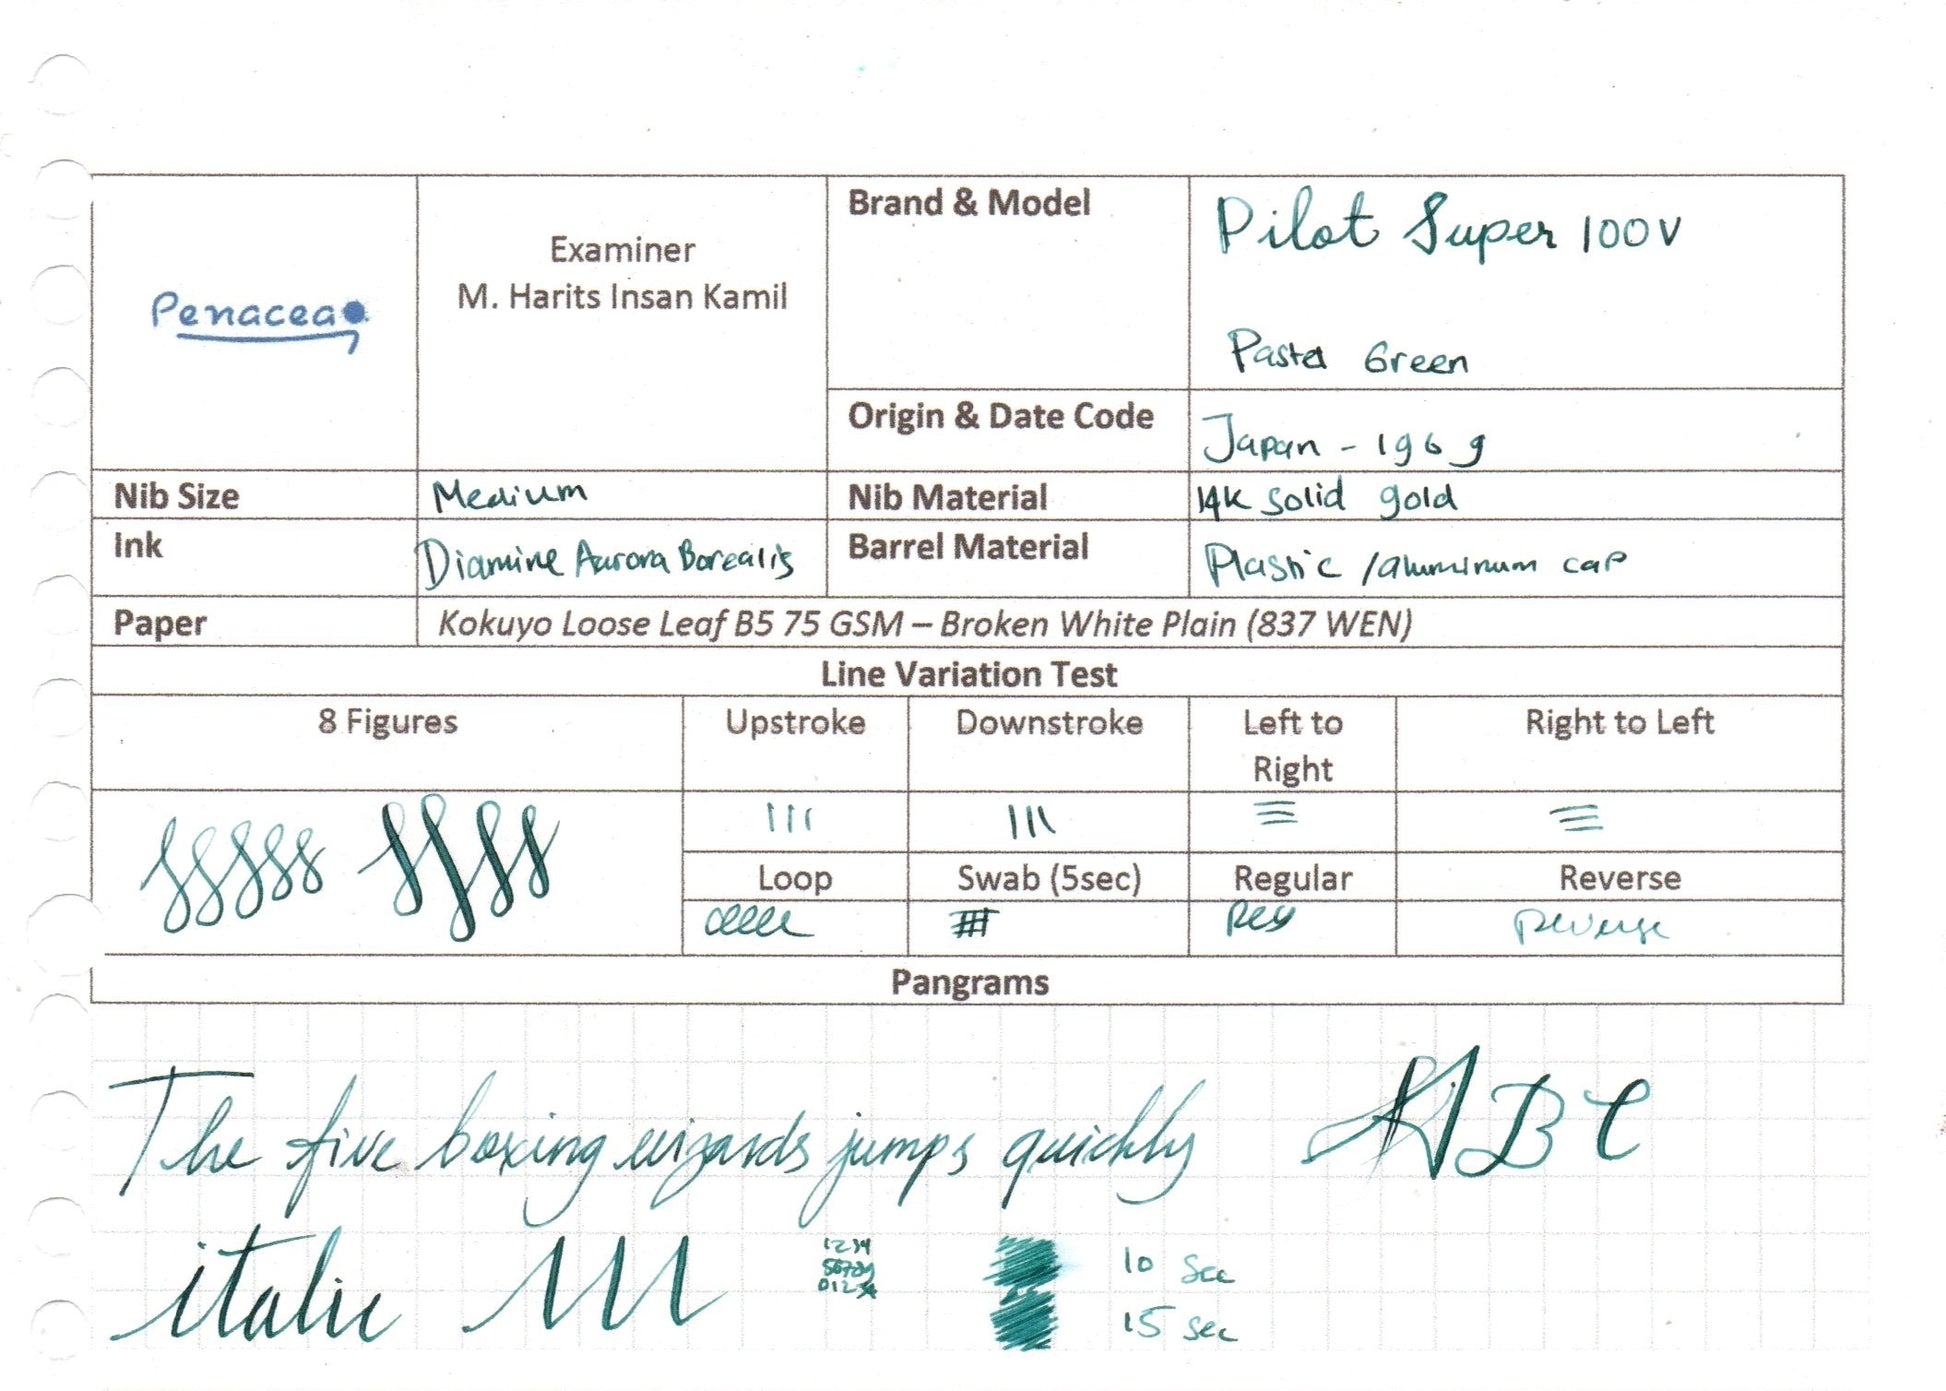 Penacea
Examiner
M. Harits Insan Kamil
Brand & Model
Pilot Super 100V
Pastel Green
Origin & Date Code
Japan - 1969
Nib Size
Medium
Nib Material
14K Solid gold
Ink
Diamine Aurora Borealis
Barrel Material
Plastic / aluminum cap
Paper
Kokuyo Loose Leaf B5 75 GSM – Broken White Plain (837 WEN)
Line Variation Test
8 Figures
Upstroke
Downstroke
Left to
Right
Right to Left
Loop
Swab (5sec)
Regular
Reverse
Reg
Reverse
Pangrams
The five boxing wizards jumps quickly
A B C
italic
1234
56789
10 Sec
15 sec